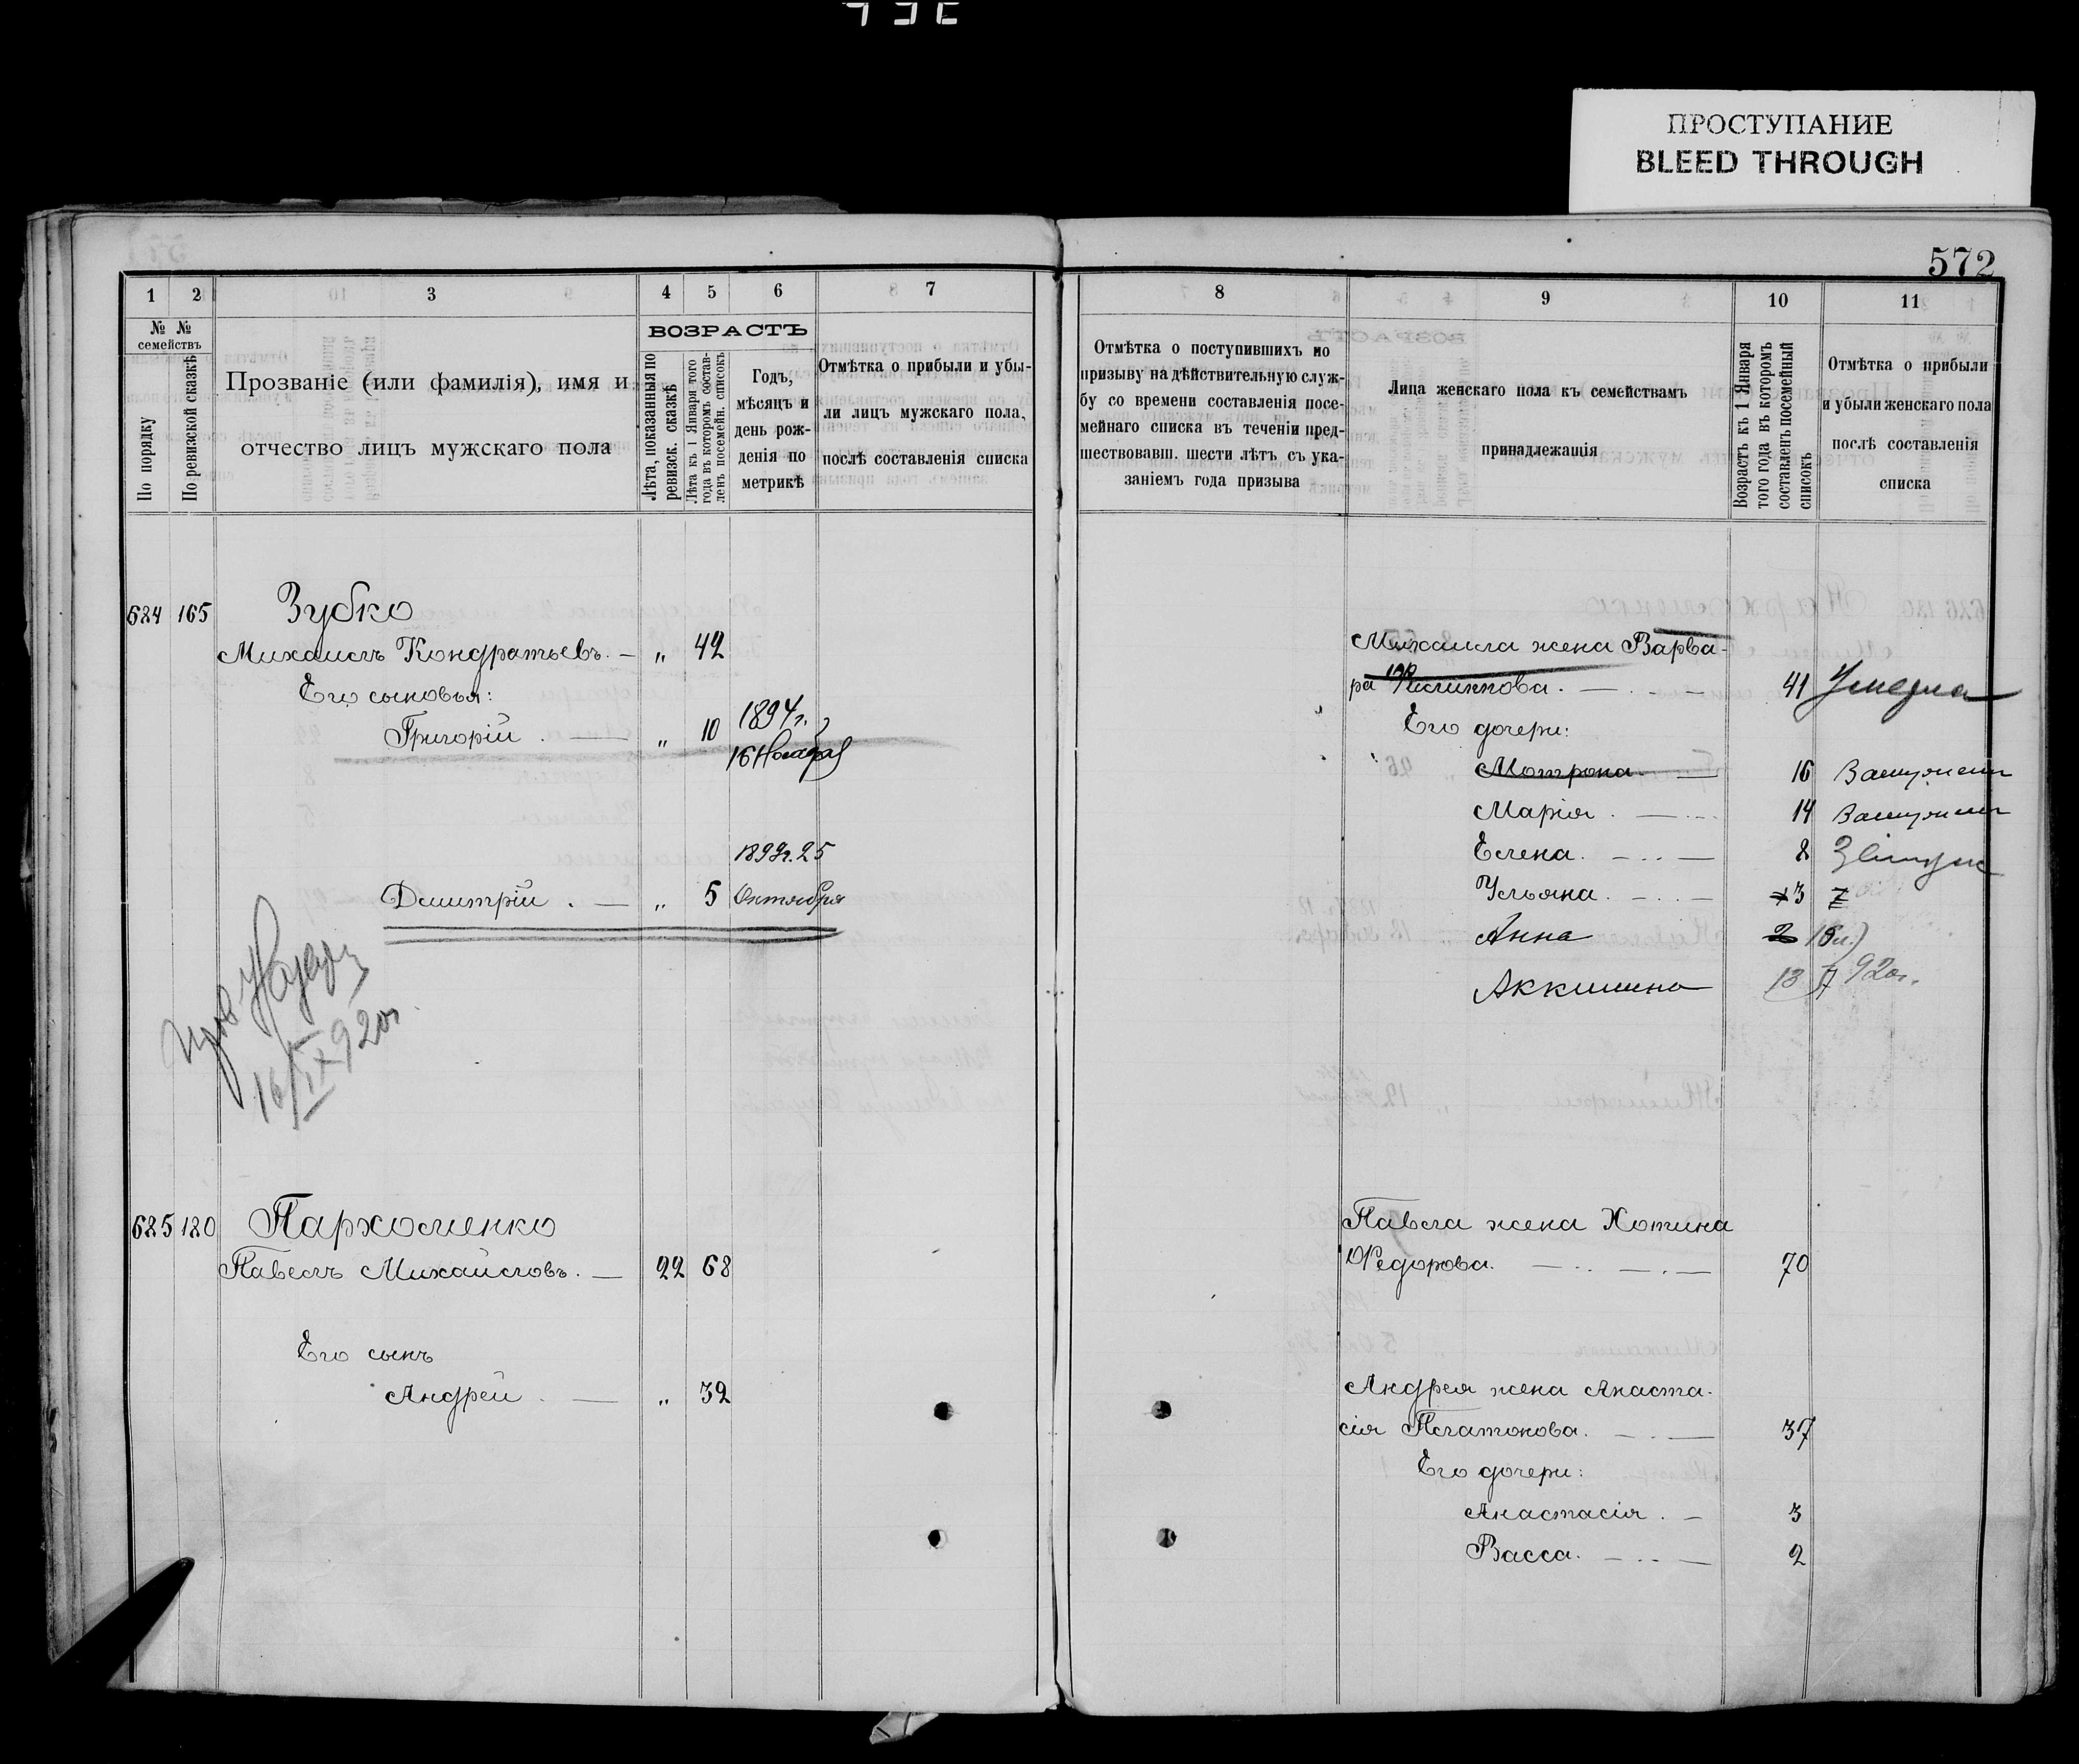 ПРОСТУПАНИЕ
BLEED THROUGH
572
1 2 3 4 5 6 7
№ № семействъ
По порядку
По ревизской сказкѣ
Прозваніе (или фамилія), имя и
отчество лицъ мужскаго пола
ВОЗРАСТЪ
Лѣта, показанныя по
ревизск. сказкѣ
Лѣта къ 1 Января того
года въ которомъ состав-
ленъ посемейн. списокъ
Годъ,
мѣсяцъ и
день рож-
денія по
метрикѣ
Отмѣтка о прибыли и убы-
ли лицъ мужскаго пола,
послѣ составленія списка
8 9 10 11
Отмѣтка о поступившихъ по
призыву на дѣйствительную служ-
бу со времени составленія посе-
мейнаго списка въ теченіи пред-
шествовавш. шести лѣтъ съ ука-
заніемъ года призыва
Лица женскаго пола къ семействамъ
принадлежащія
Возрастъ къ 1 Января
того года въ которомъ
составленъ посемейный
списокъ
Отмѣтка о прибыли
и убыли женскаго пола
послѣ составленія
списка
684 165 Зубко
Михаилъ Кондратьевъ. — „ 42
Его сыновья:
Григорій . — „ 10 1894 г.
16 Ноября
189 г. 25
Димитрій . — „ 5 Октября
16/IX 920 г.
685 180 Пархоменко
Павелъ Михайловъ. — 22 68
Его сынъ
Андрей . — „ 32
Михаила жена Варва-
ра Филиппова. — . — 41 Умерла
Его дочери:
Мотрона. — 16 Замужем
Марія . — 14 Замужем
Елена. — . . — 8 Замуж
Ульяна. — . . — 3
Анна 2
Аккилина 13 920 г.
Павла жена Хотина
Федорова. — . . — . — 70
Андрея жена Анаста-
сія Платонова. — . — 37
Его дочери:
Анастасія . — 3
Васса. — . . — 2